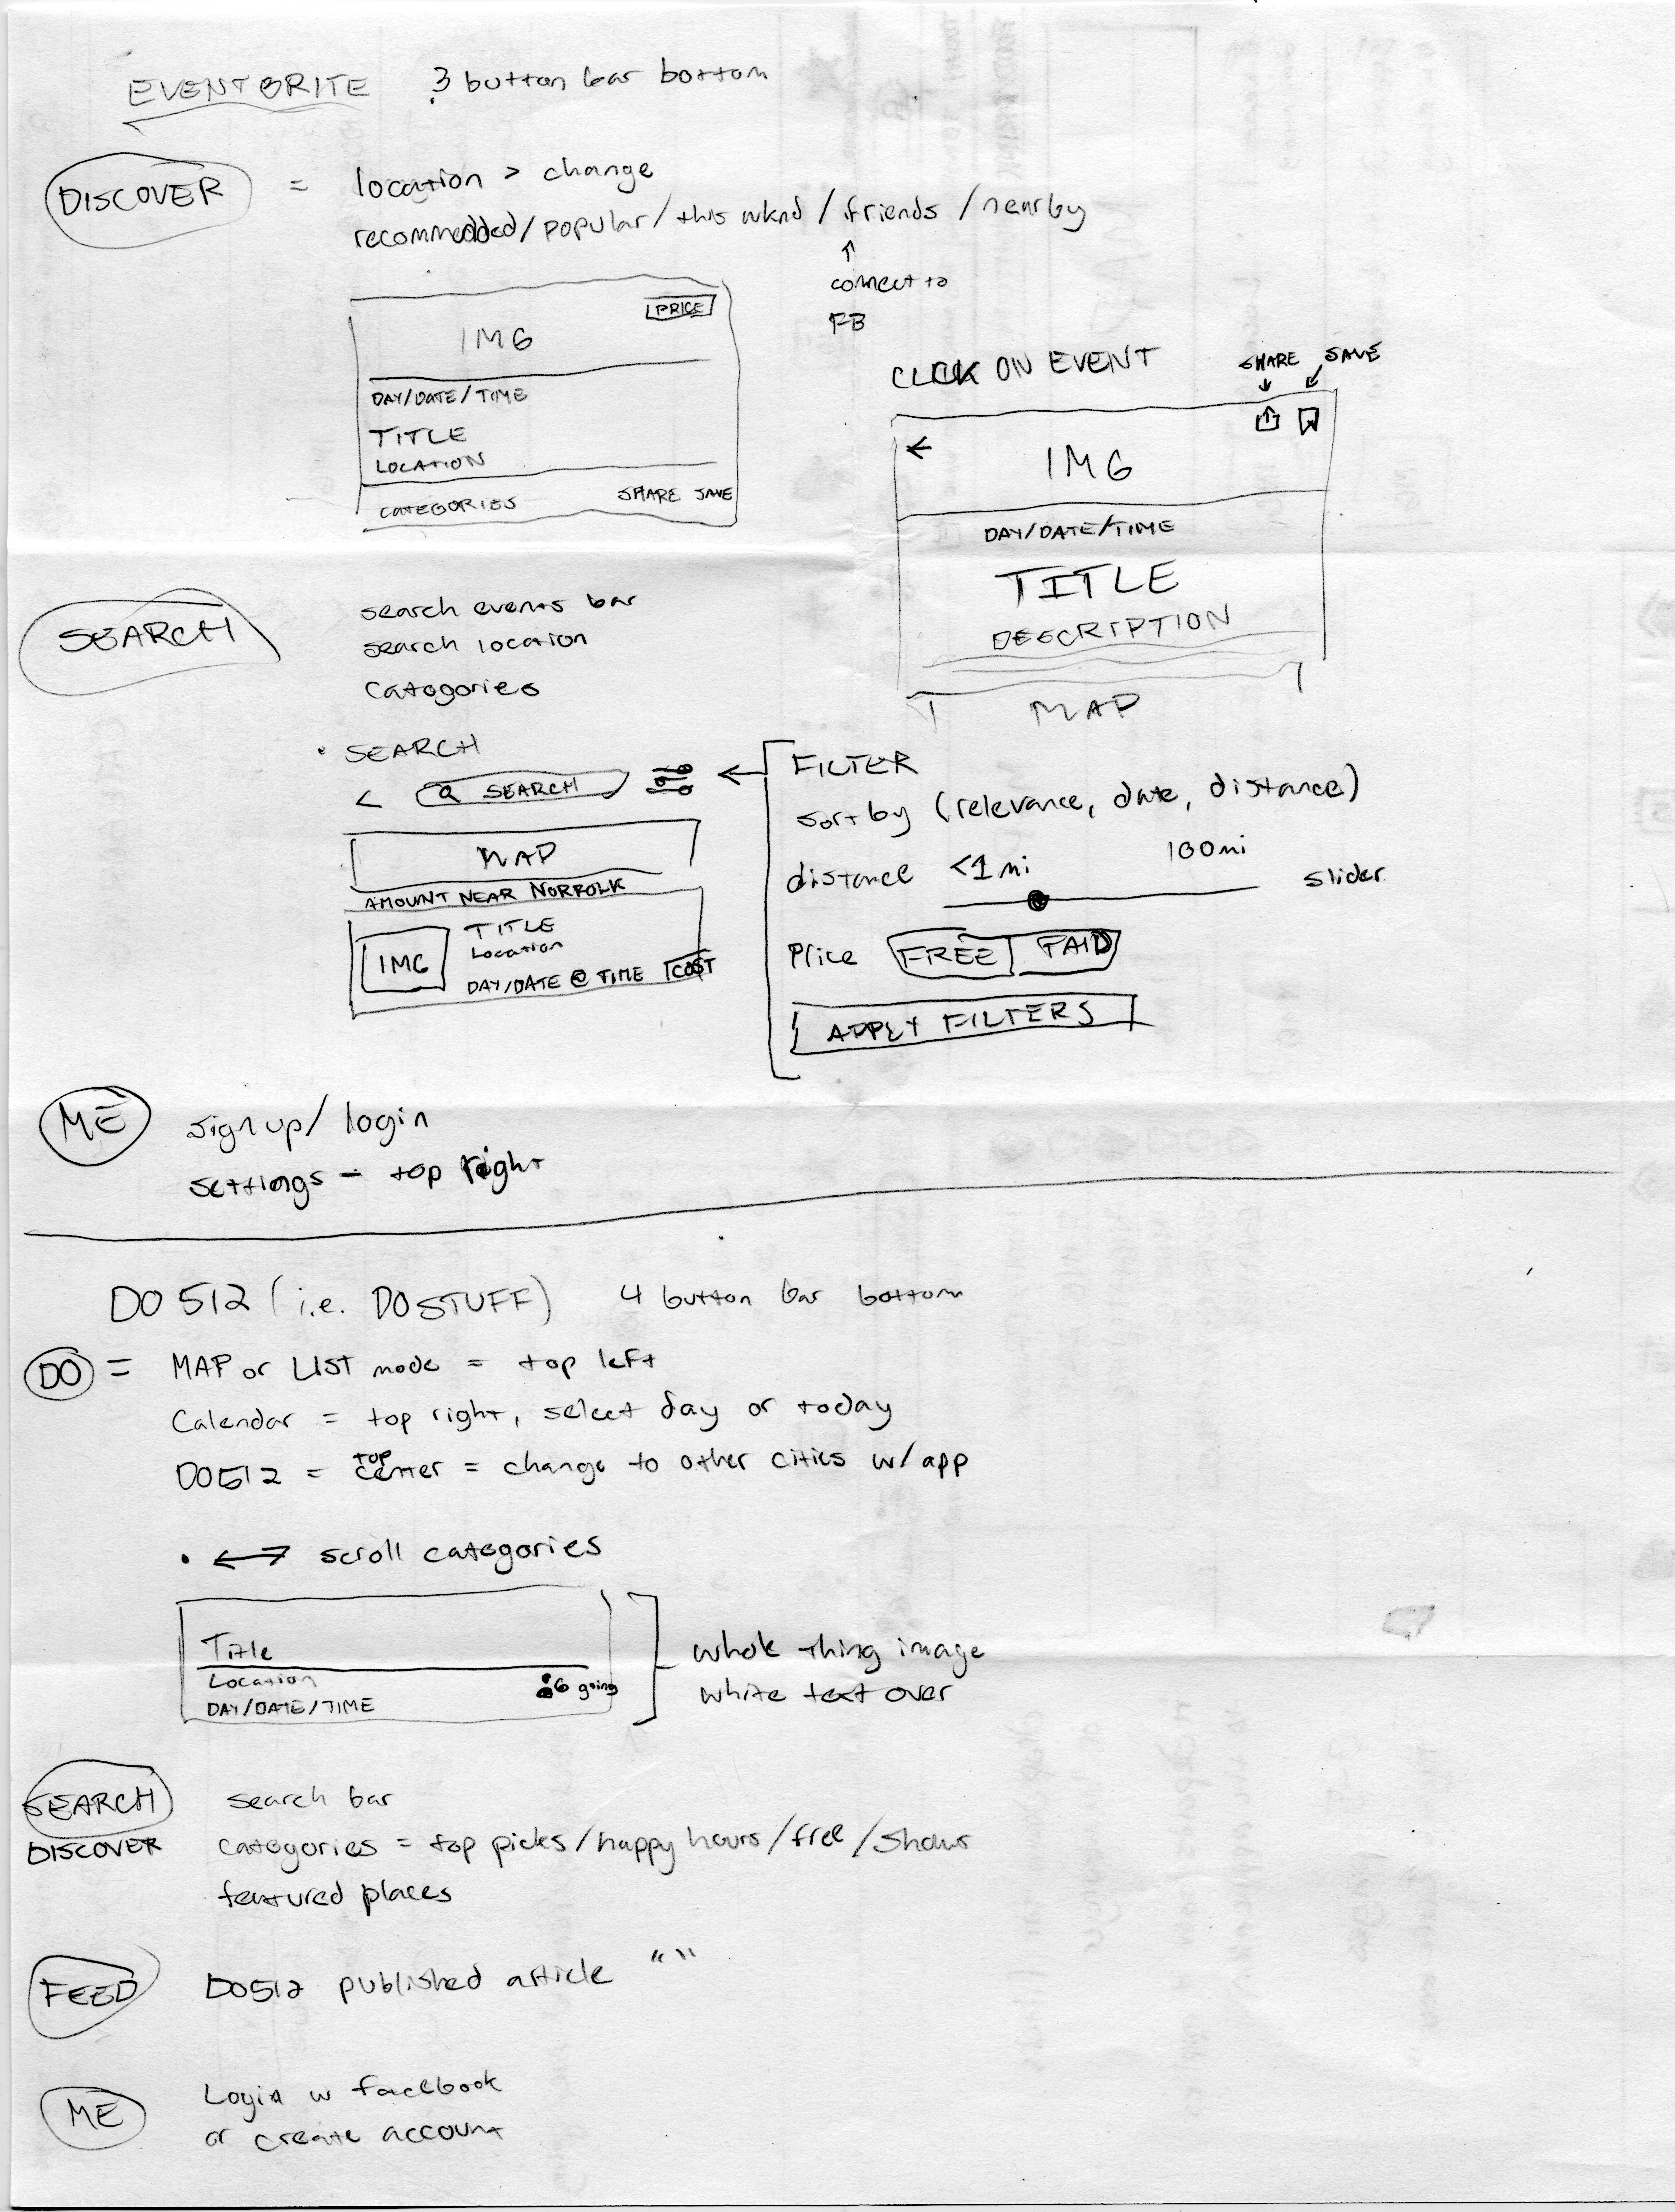 EVENTBRITE 3 button bar bottom
DISCOVER = location > change
recommedded/popular/this wknd/friends/nearby
↑
connect to
FB
PRICE
IMG
DAY/DATE/TIME
TITLE
LOCATION
CATEGORIES SHARE SAVE
CLICK ON EVENT SHARE SAVE
←
IMG
DAY/DATE/TIME
TITLE
DESCRIPTION
MAP
SEARCH
search events bar
search location
categories
• SEARCH
< SEARCH
MAP
AMOUNT NEAR NORFOLK
IMG
TITLE
Location
DAY/DATE @ TIME COST
← FILTER
sort by (relevance, date, distance)
distance <1mi 100mi slider
Price FREE PAID
APPLY FILTERS
ME sign up/login
settings - top right
DO512 (i.e. DOSTUFF) 4 button bar bottom
DO = MAP or LIST mode = top left
Calendar = top right, select day or today
DO512 = TOP center = change to other cities w/app
• ↔ scroll categories
Title
Location 6 going
DAY/DATE/TIME
whole thing image
white text over
SEARCH search bar
DISCOVER categories = top picks/happy hours/free/shows
featured places
FEED DO512 published article “ ”
ME Login w facebook
or create account